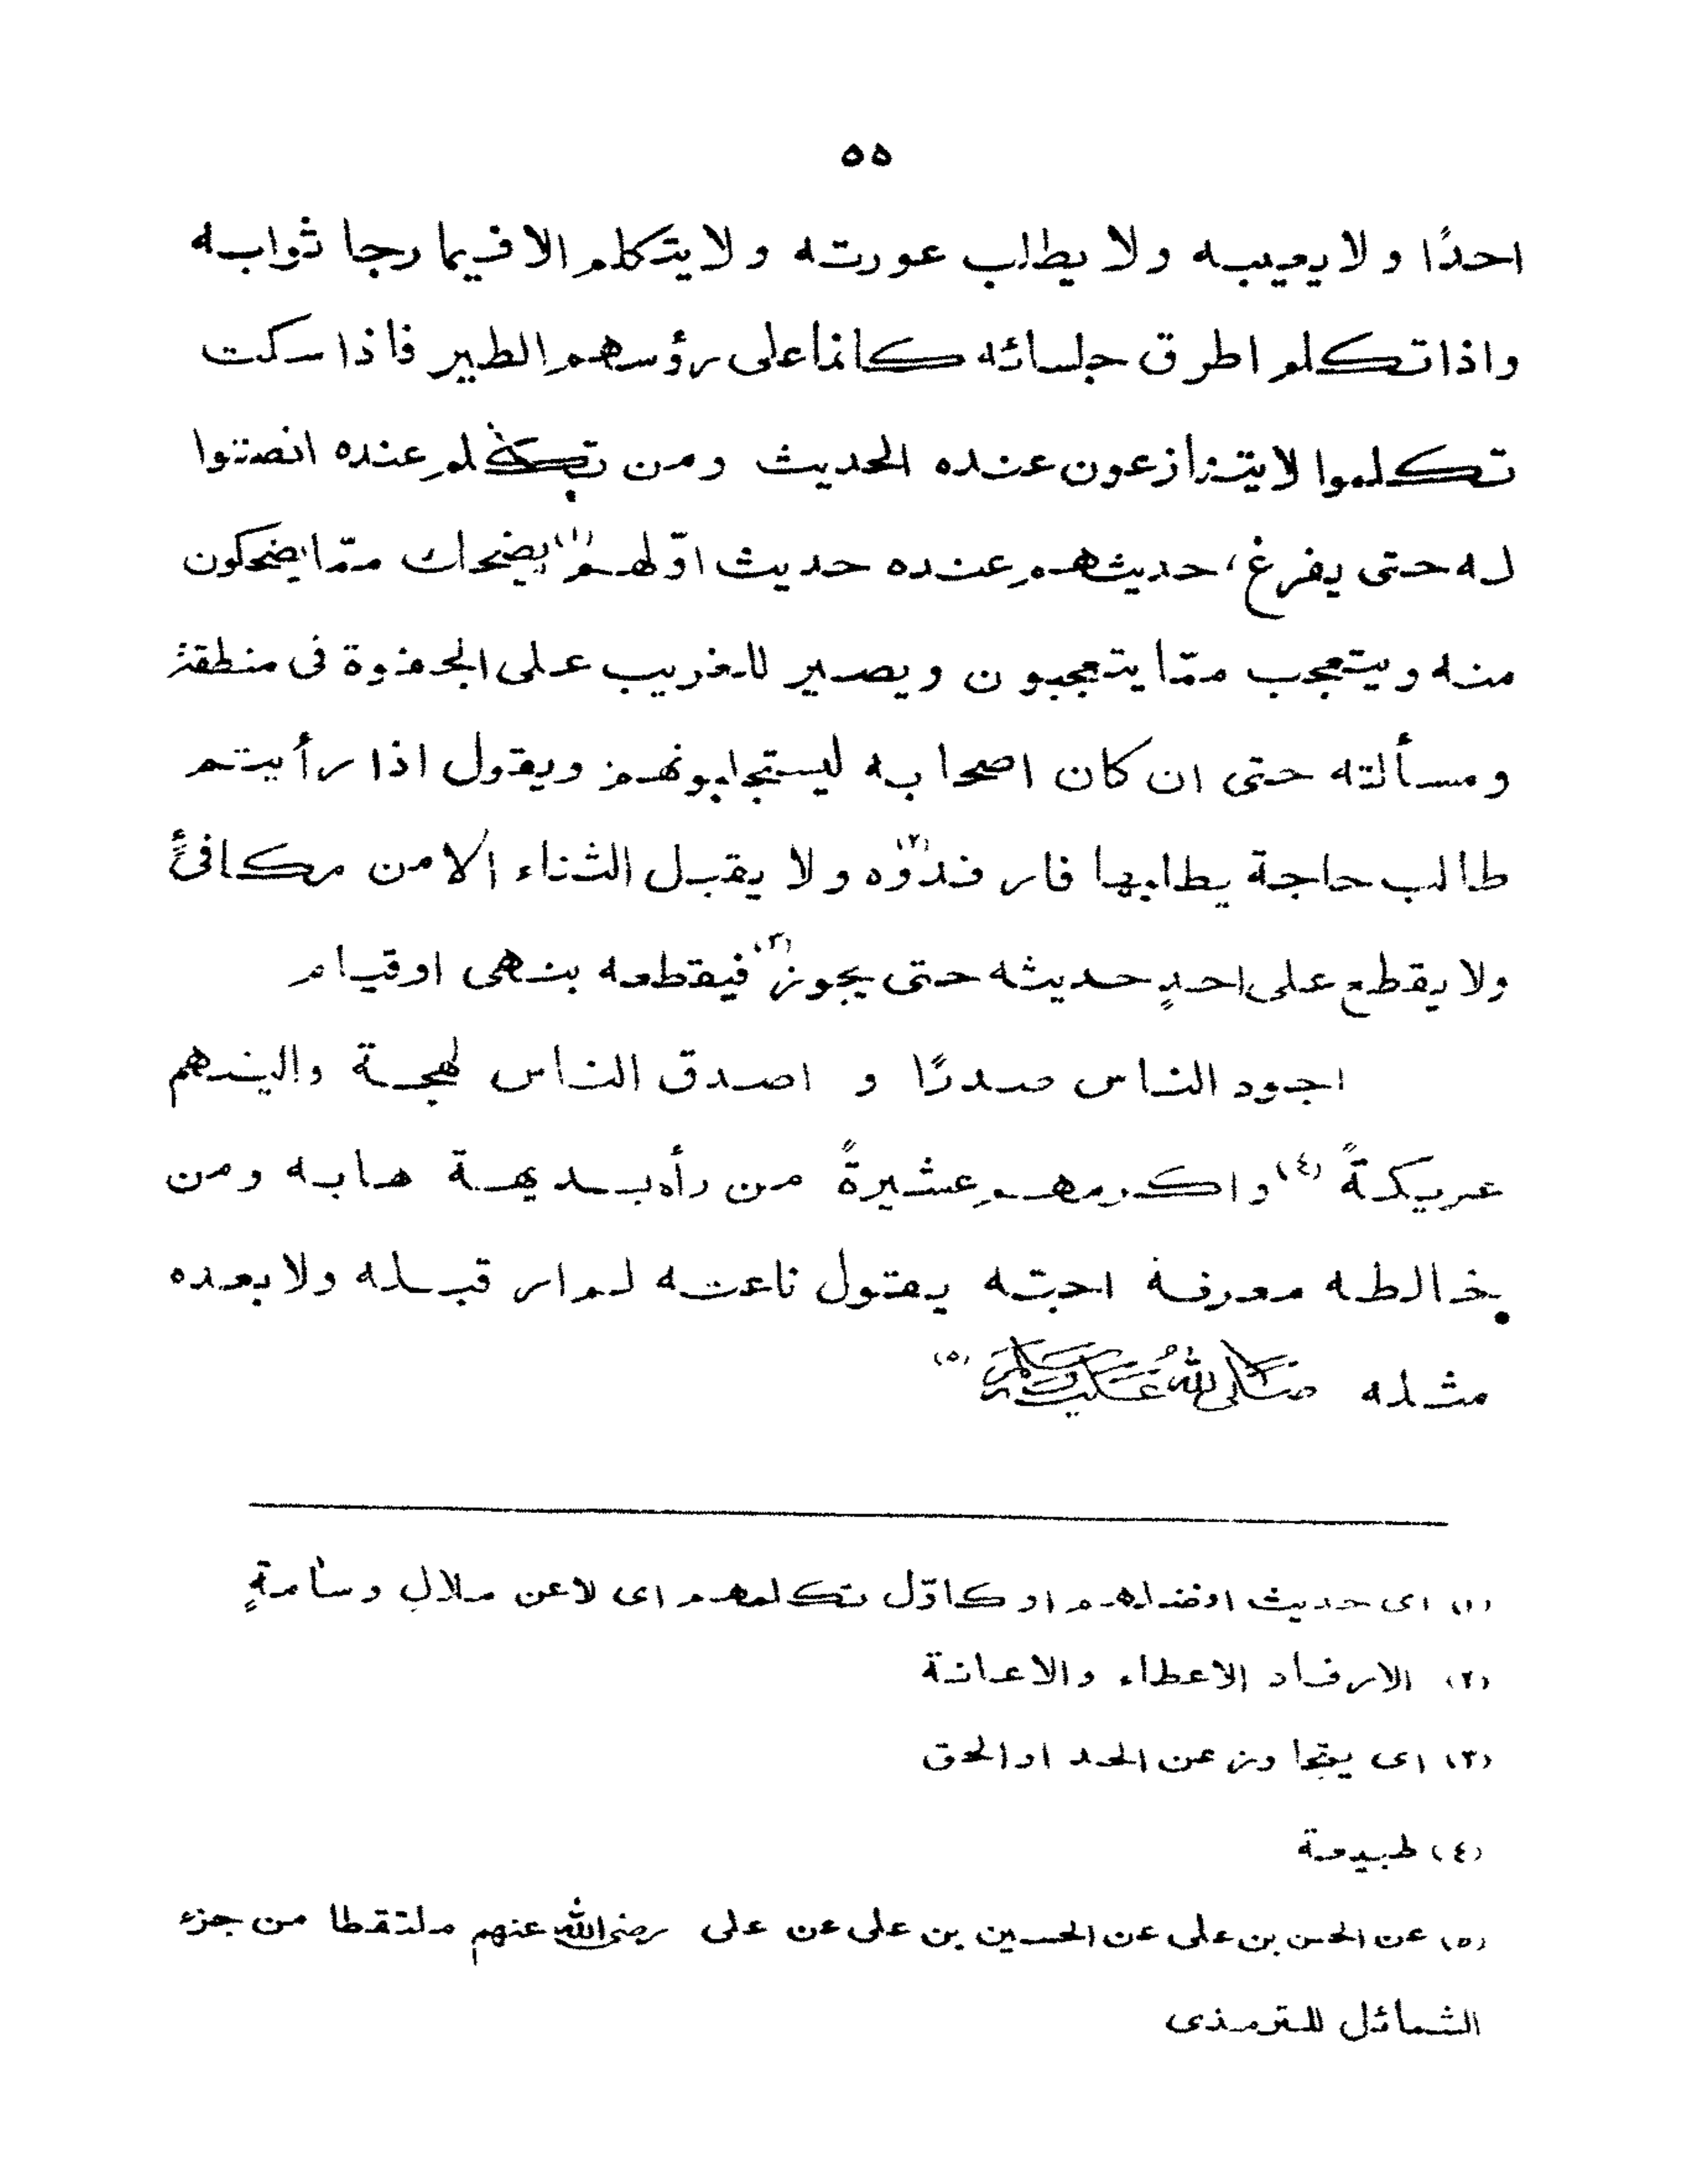 ٥٥
احدًا ولا يعيبه ولا يطلب عورته ولا يتكلم الا فيما رجا ثوابه
واذا تكلم اطرق جلسائه كانما على رؤسهم الطير فاذا سكت
تكلموا لا يتنازعون عنده الحديث ومن تكلم عنده انصتوا
له حتى يفرغ، حديثهم عنده حديث اوّلهم (١) يضحك ممّا يضحكون
منه ويتعجب ممّا يتعجبون ويصبر للغريب على الجفوة فى منطقة
ومسألته حتى ان كان اصحابه ليستجلبونهم ويقول اذا رأيتم
طالب حاجة يطلبها فارفدوه (٢) ولا يقبل الثناء الا من مكافئً
ولا يقطع على احدٍ حديثه حتى يجوز (٣) فيقطعه بنهى او قيام
اجود الناس صدرًا و اصدق الناس لهجة والينهم
عريكةً (٤) واكرمهم عشيرةً من رأه بديهة هابه ومن
خالطه معرفة احبّه يقول ناعته لم ار قبله ولا بعده
مثله صَلَّى اللهُ عَلَيْهِ وَسَلَّمَ (٥)
(١) اى حديث افضلهم او كاوّل تكلمهم اى لا عن ملالٍ وسأمةٍ
(٢) الارفاد الاعطاء والاعانة
(٣) اى يتجاوز عن الحد او الحق
(٤) طبيعة
(٥) عن الحسن بن على عن الحسين بن على عن على رضى الله عنهم ملتقطا من جزء
الشمائل للترمذى